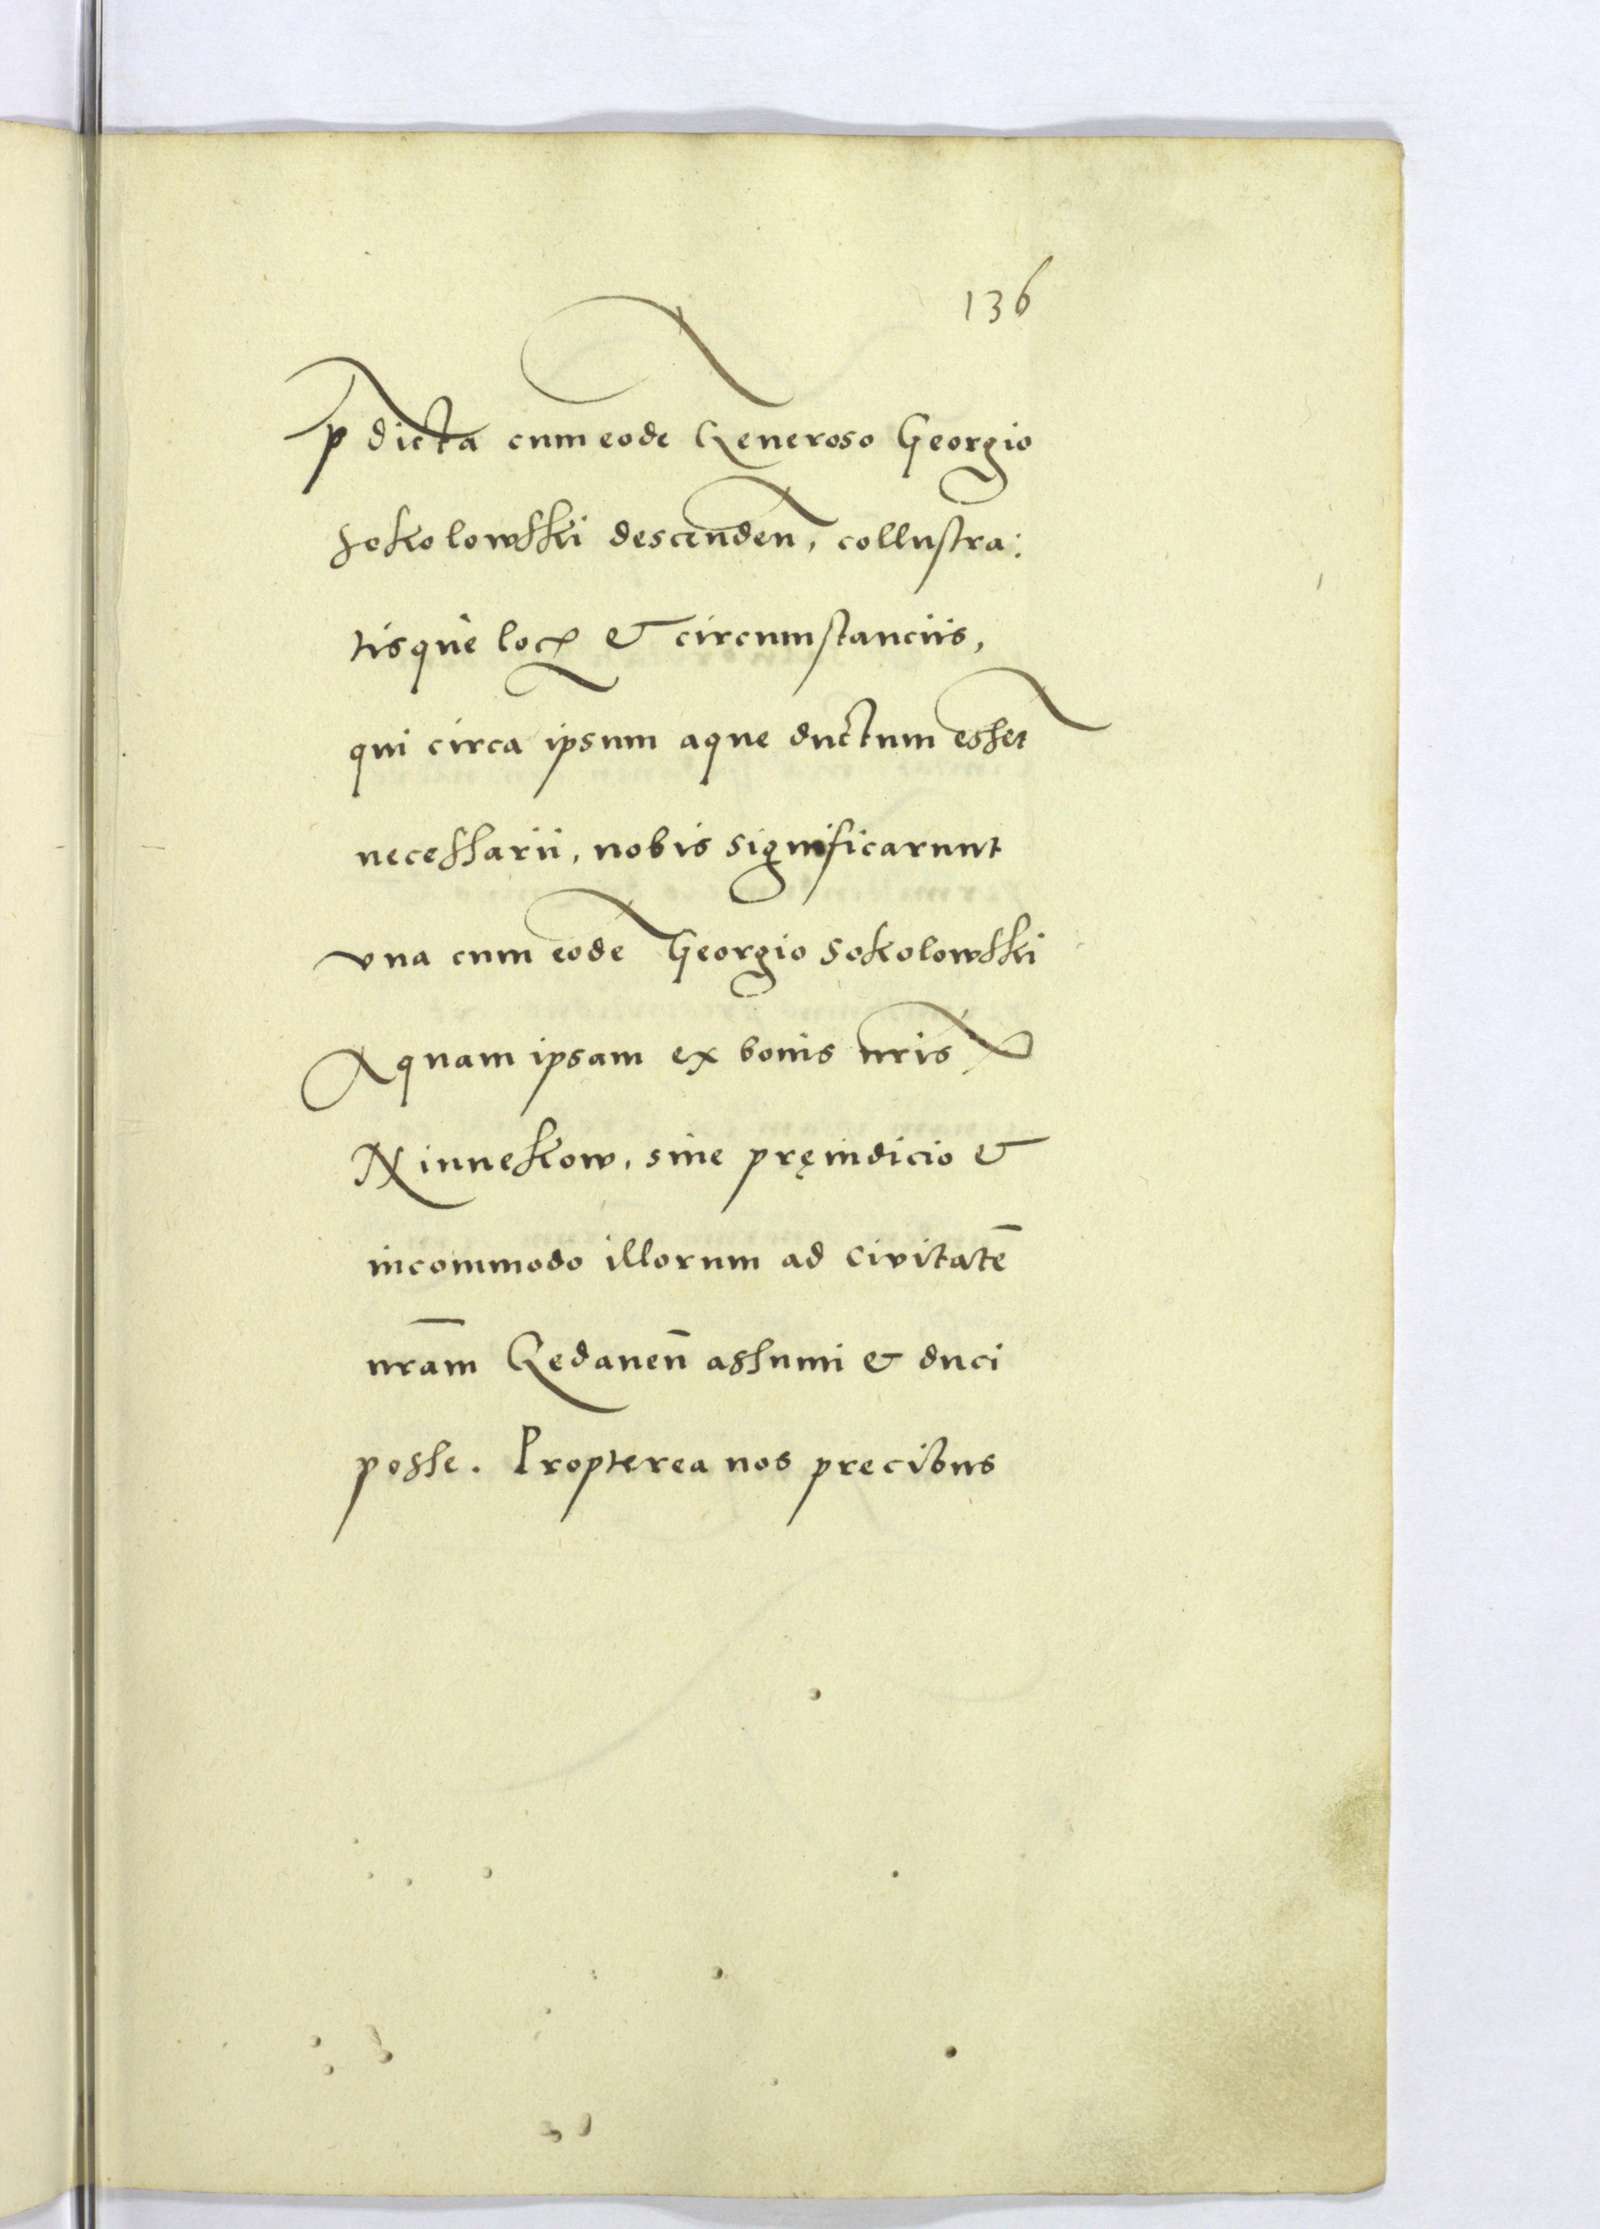 136
p̄dicta cum eode Generoso Georgio
Sokolowski descenden̄, collustra:
tisque locꝭ & circumstanciis,
qui circa ipsum aque ductum essēt
necessarii, nobis significarunt
vna cum eodē Georgio Sokolowski
Aquam ipsam ex bonis nr̄is
Ninnekow, sine pręiudicio &
incommodo illorum ad Civitatē
nr̄am Gedanen̄ assumi & duci
posse. Propterea nos precibus